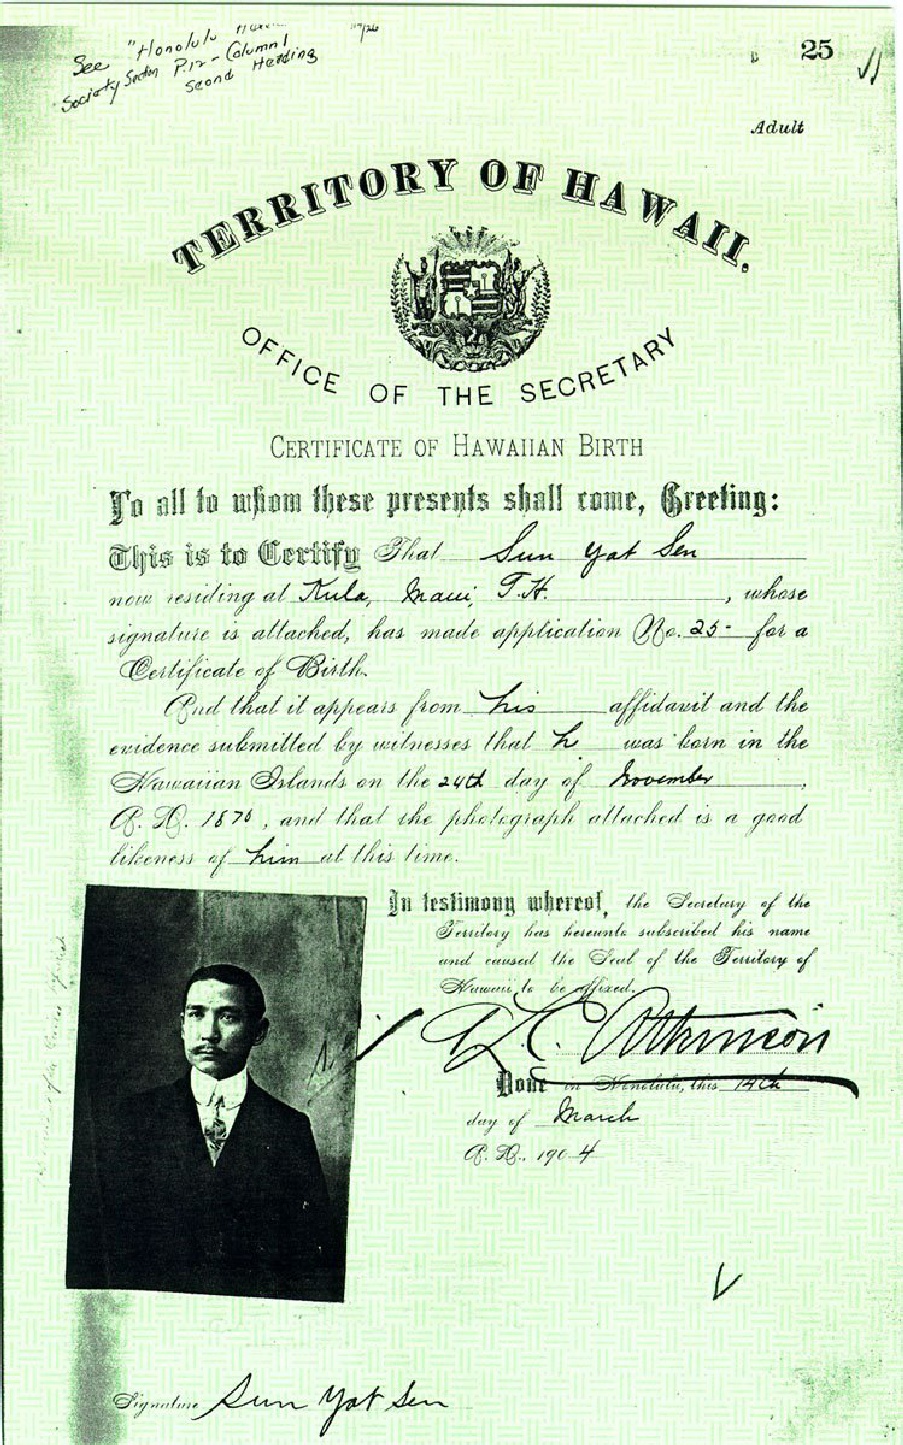 See "Honolulu
Society Section P.12 - Column 1
Second Heading
25
Adult
TERRITORY OF HAWAII.
OFFICE OF THE SECRETARY
CERTIFICATE OF HAWAIIAN BIRTH
To all to whom these presents shall come, Greeting:
This is to Certify That Sun Yat Sen
now residing at Kula, Maui, T.H. , whose
signature is attached, has made application No. 25- for a
Certificate of Birth.
And that it appears from his affidavit and the
evidence submitted by witnesses that h was born in the
Hawaiian Islands on the 24th day of November,
A. D. 1870, and that the photograph attached is a good
likeness of him at this time.
In testimony whereof, the Secretary of the
Territory has hereunto subscribed his name
and caused the Seal of the Territory of
Hawaii to be affixed.
A. L. C. Atkinson
Done in Honolulu, this 14th
day of March
A. D., 1904
Signature Sun Yat Sen